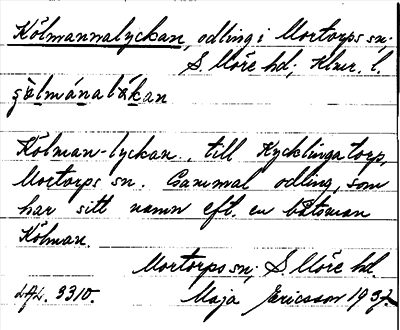 Kölmannalyckan, odling i Mortorps sn.
S. Möre hd; Klmr. l.
Kölman-lyckan., till Kycklingatorp,
Mortorps sn. Gammal odling, som
har sitt namn eft. en båtsman
Kölman.
Mortorps sn; S. Möre hd.
LAL. 3310. Maja Ericsson 1937.